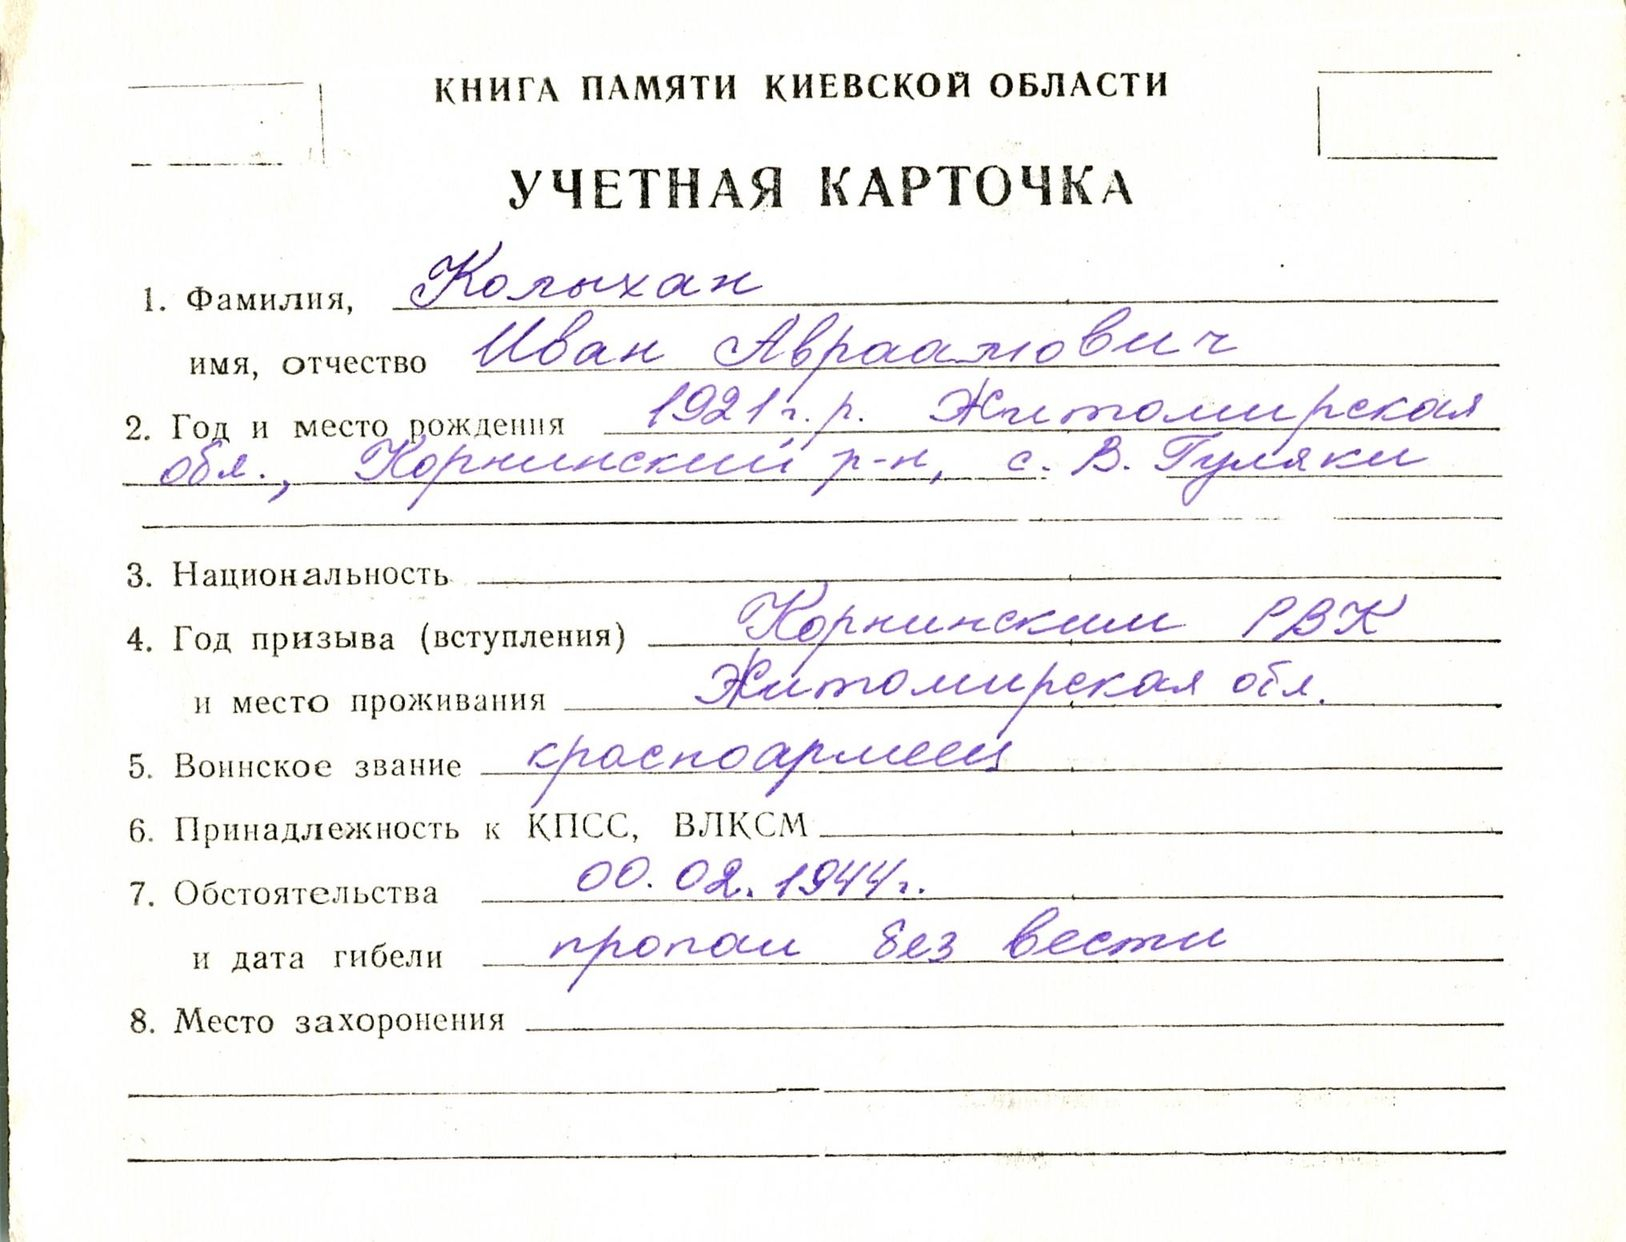 КНИГА ПАМЯТИ КИЕВСКОЙ ОБЛАСТИ
УЧЕТНАЯ КАРТОЧКА
1. Фамилия, Колыхан
имя, отчество Иван Авраамович
2. Год и место рождения 1921 г.р. Житомирская
обл., Корнинский р-н, с. В. Гуляки
3. Национальность
4. Год призыва (вступления) Корнинским РВК
и место проживания Житомирская обл.
5. Воинское звание красноармеец
6. Принадлежность к КПСС, ВЛКСМ
7. Обстоятельства 00.02.1944г.
и дата гибели пропал без вести
8. Место захоронения